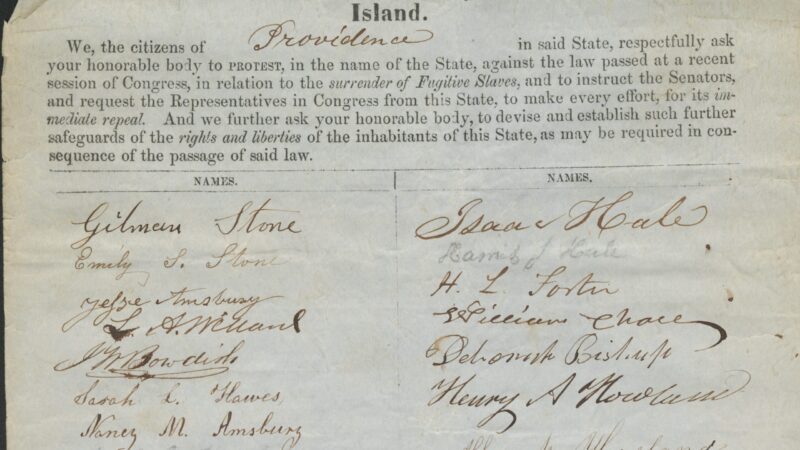 Island.
We, the citizens of Providence in said State, respectfully ask
your honorable body to PROTEST, in the name of the State, against the law passed at a recent
session of Congress, in relation to the surrender of Fugitive Slaves, and to instruct the Senators,
and request the Representatives in Congress from this State, to make every effort, for its im-
mediate repeal. And we further ask your honorable body, to devise and establish such further
safeguards of the rights and liberties of the inhabitants of this State, as may be required in con-
sequence of the passage of said law.
NAMES.
Gilman Stone
Emily S. Stone
Jesse Amsbury
L. A. Willard
J W Bowdish
Sarah L. Hawes
Nancy M. Amsbury
NAMES.
Isaac Hale
Harriet J Hale
H. L. Foster
William Chace
Deborah Bishup
Henry A Howland